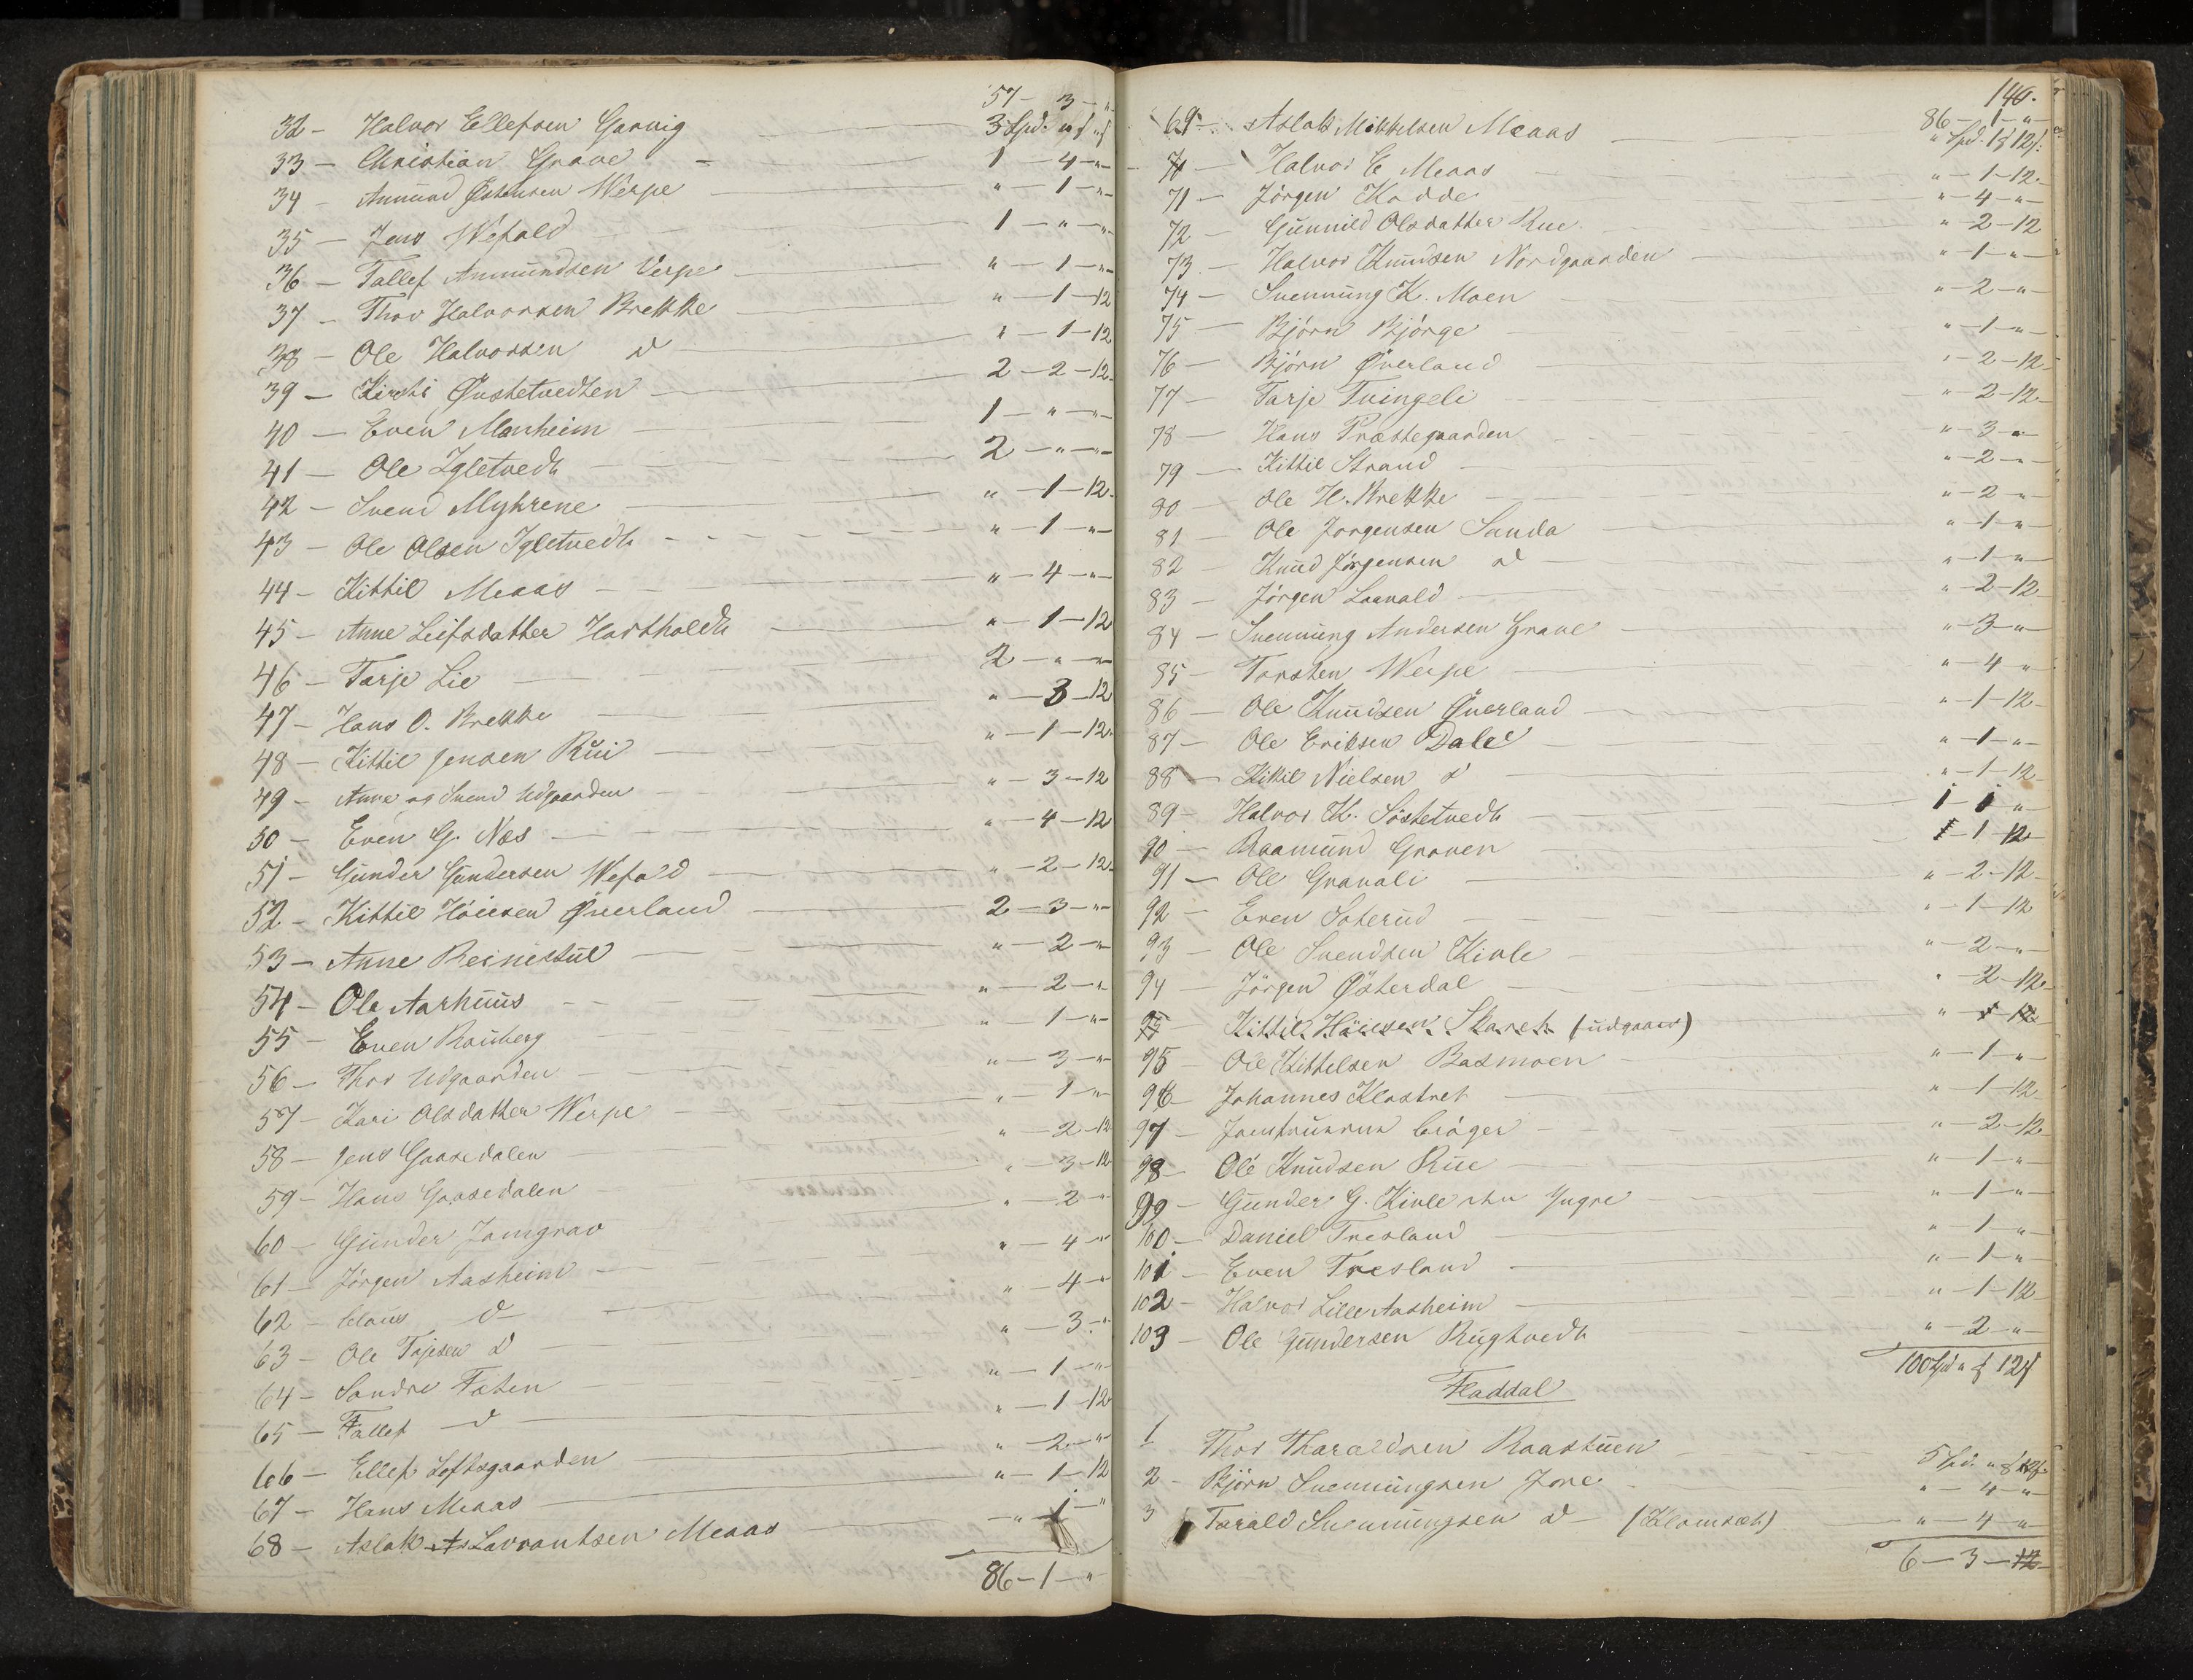 57 - 3 - "
32 - Halvor Ellefsen Garvig 3 Spd. " ß " s
33 - Christian Grave 1 - 4 - "
34 - Anmund Østensen Werpe " - 1 - "
35 - Jens Wefald 1 - " - "
36 - Tallef Anmundsen Verpe " - 1 - "
37 - Thov Halvorsen Brekke " - 1 - 12
38 - Ole Halvorsen d " - 1 - 12
39 - Kirsti Øustetvedten 2 - 2 - 12
40 - Even Manheim 1 - " - "
41 - Ole Igletvedt 2 - " - "
42 - Svend Myhrene " - 1 - 12
43 - Ole Olsen Igletvedt " - 1 - "
44 - Kittil Meaas " - 4 - "
45 - Anne Leifsdatter Hartholdt " - 1 - 12
46 - Tarje Lie 2 - " - "
47 - Hans O. Brekke " - 3 - 12
48 - Kittil Jensen Rui " - 1 - 12
49 - Anne og Svend Udgaarden " - 3 - 12
50 - Even G. Næs " - 4 - 12
51 - Gunder Gundersen Wefald " - 2 - 12
52 - Kittil Høiesen Øverland 2 - 3 - "
53 - Anne Reinestul " - 2 - "
54 - Ole Aarhuus " - 2 - "
55 - Even Rouberg " - 1 - "
56 - Thor Udgaarden " - 3 - "
57 - Kari Olsdatter Werpe " - 1 - "
58 - Jens Gaasedalen " - 2 - 12
59 - Hans Gaasedalen " - 3 - 12
60 - Gunder Jamgrav " - 2 - "
61 - Jørgen Aasheim " - 4 - "
62 - Claus d " - 4 - "
63 - Ole Tajesen d " - 3 - "
64 - Sondre Tæten " - 1 - "
65 - Tallef d " - 1 - 12
66 - Ellef Loftsgaarden " - 2 - "
67 - Hans Meaas " - 1 - 12
68 - Aslak Lavrantsen Meaas " - 1 - "
86 - 1 - "
140.
86 - 1 - "
69 - Aslak Mikkelsen Meaas " Spd. 1 ß 12 s
70 - Halvor E Meaas " - 1 - 12
71 - Jörgen Kadde " - 4 - "
72 - Gunnild Olsdatter Rue " - 2 - 12
73 - Halvor Knudsen Nordgaarden " - 1 - "
74 - Svennung K. Moen " - 2 - "
75 - Björn Björge " - 1 - "
76 - Björn Øverland " - 2 - 12
77 - Tarje Tvingeli " - 2 - 12
78 - Hans Præstegaarden " - 3 - "
79 - Kittil Strand " - 2 - "
80 - Ole H. Brekke " - 2 - "
81 - Ole Jorgensen Sanda " - 1 - "
82 - Knud Jørgensen d " - 1 - "
83 - Jörgen Laavald " - 2 - 12
84 - Svennung Andersen Grave " - 3 - "
85 - Torsten Werpe " - 4 - "
86 - Ole Knudsen Øverland " - 1 - 12
87 - Ole Eriksen Dale " - 1 - "
88 - Kittil Nielsen d " - 1 - 12
89 - Halvor K. Söstetvedt 1 - 1 - "
90 - Raamund Graven 1 - 1 - 12
91 - Ole Gravali " - 2 - 12
92 - Even Soterud " - 1 - 12
93 - Ole Svendsen Kivle " - 2 - "
94 - Jörgen Østerdal " - 2 - 12
95 - Kittil Höiesen Skaret (udgaaer) " - 1 - 12
95 - Ole Kittelsen Basmoen " - 1 - "
96 - Johannes Klostret " - 1 - 12
97 - Cröger " - 2 - 12
98 - Ole Knudsen Rue " - 1 - "
99 - Gunder G. Kivle Yngre " - 1 - "
100 - Daniel Tresland " - 1 - "
101 - Even Tresland " - 1 - "
102 - Halvor Lille Aasheim " - 1 - 12
103 - Ole Gundersen Rugtvedt " - 2 - "
100 Spd " ß 12 s
Haddal
1 Thor Tharaldsen Raastuen 5 Spd. " ß 12 s
2 - Björn Svenningsen Jore " - 4 - "
3 Tarald Svenningsen d (Klomset) " - 4 - "
6 - 3 - 12